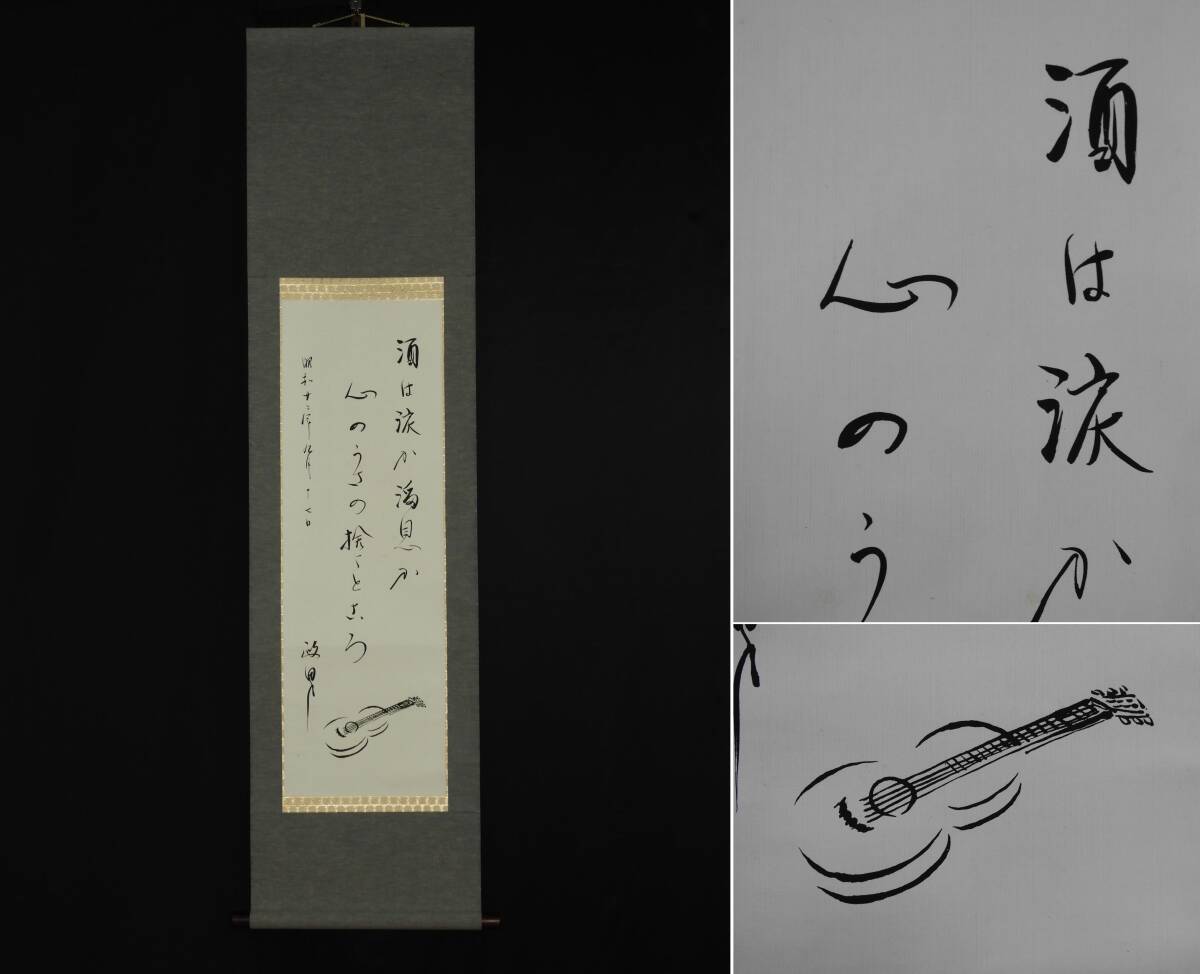 酒は涙か溜息か
心のうさの捨てところ
昭和 九月十七日
政男
酒は涙か
心のう